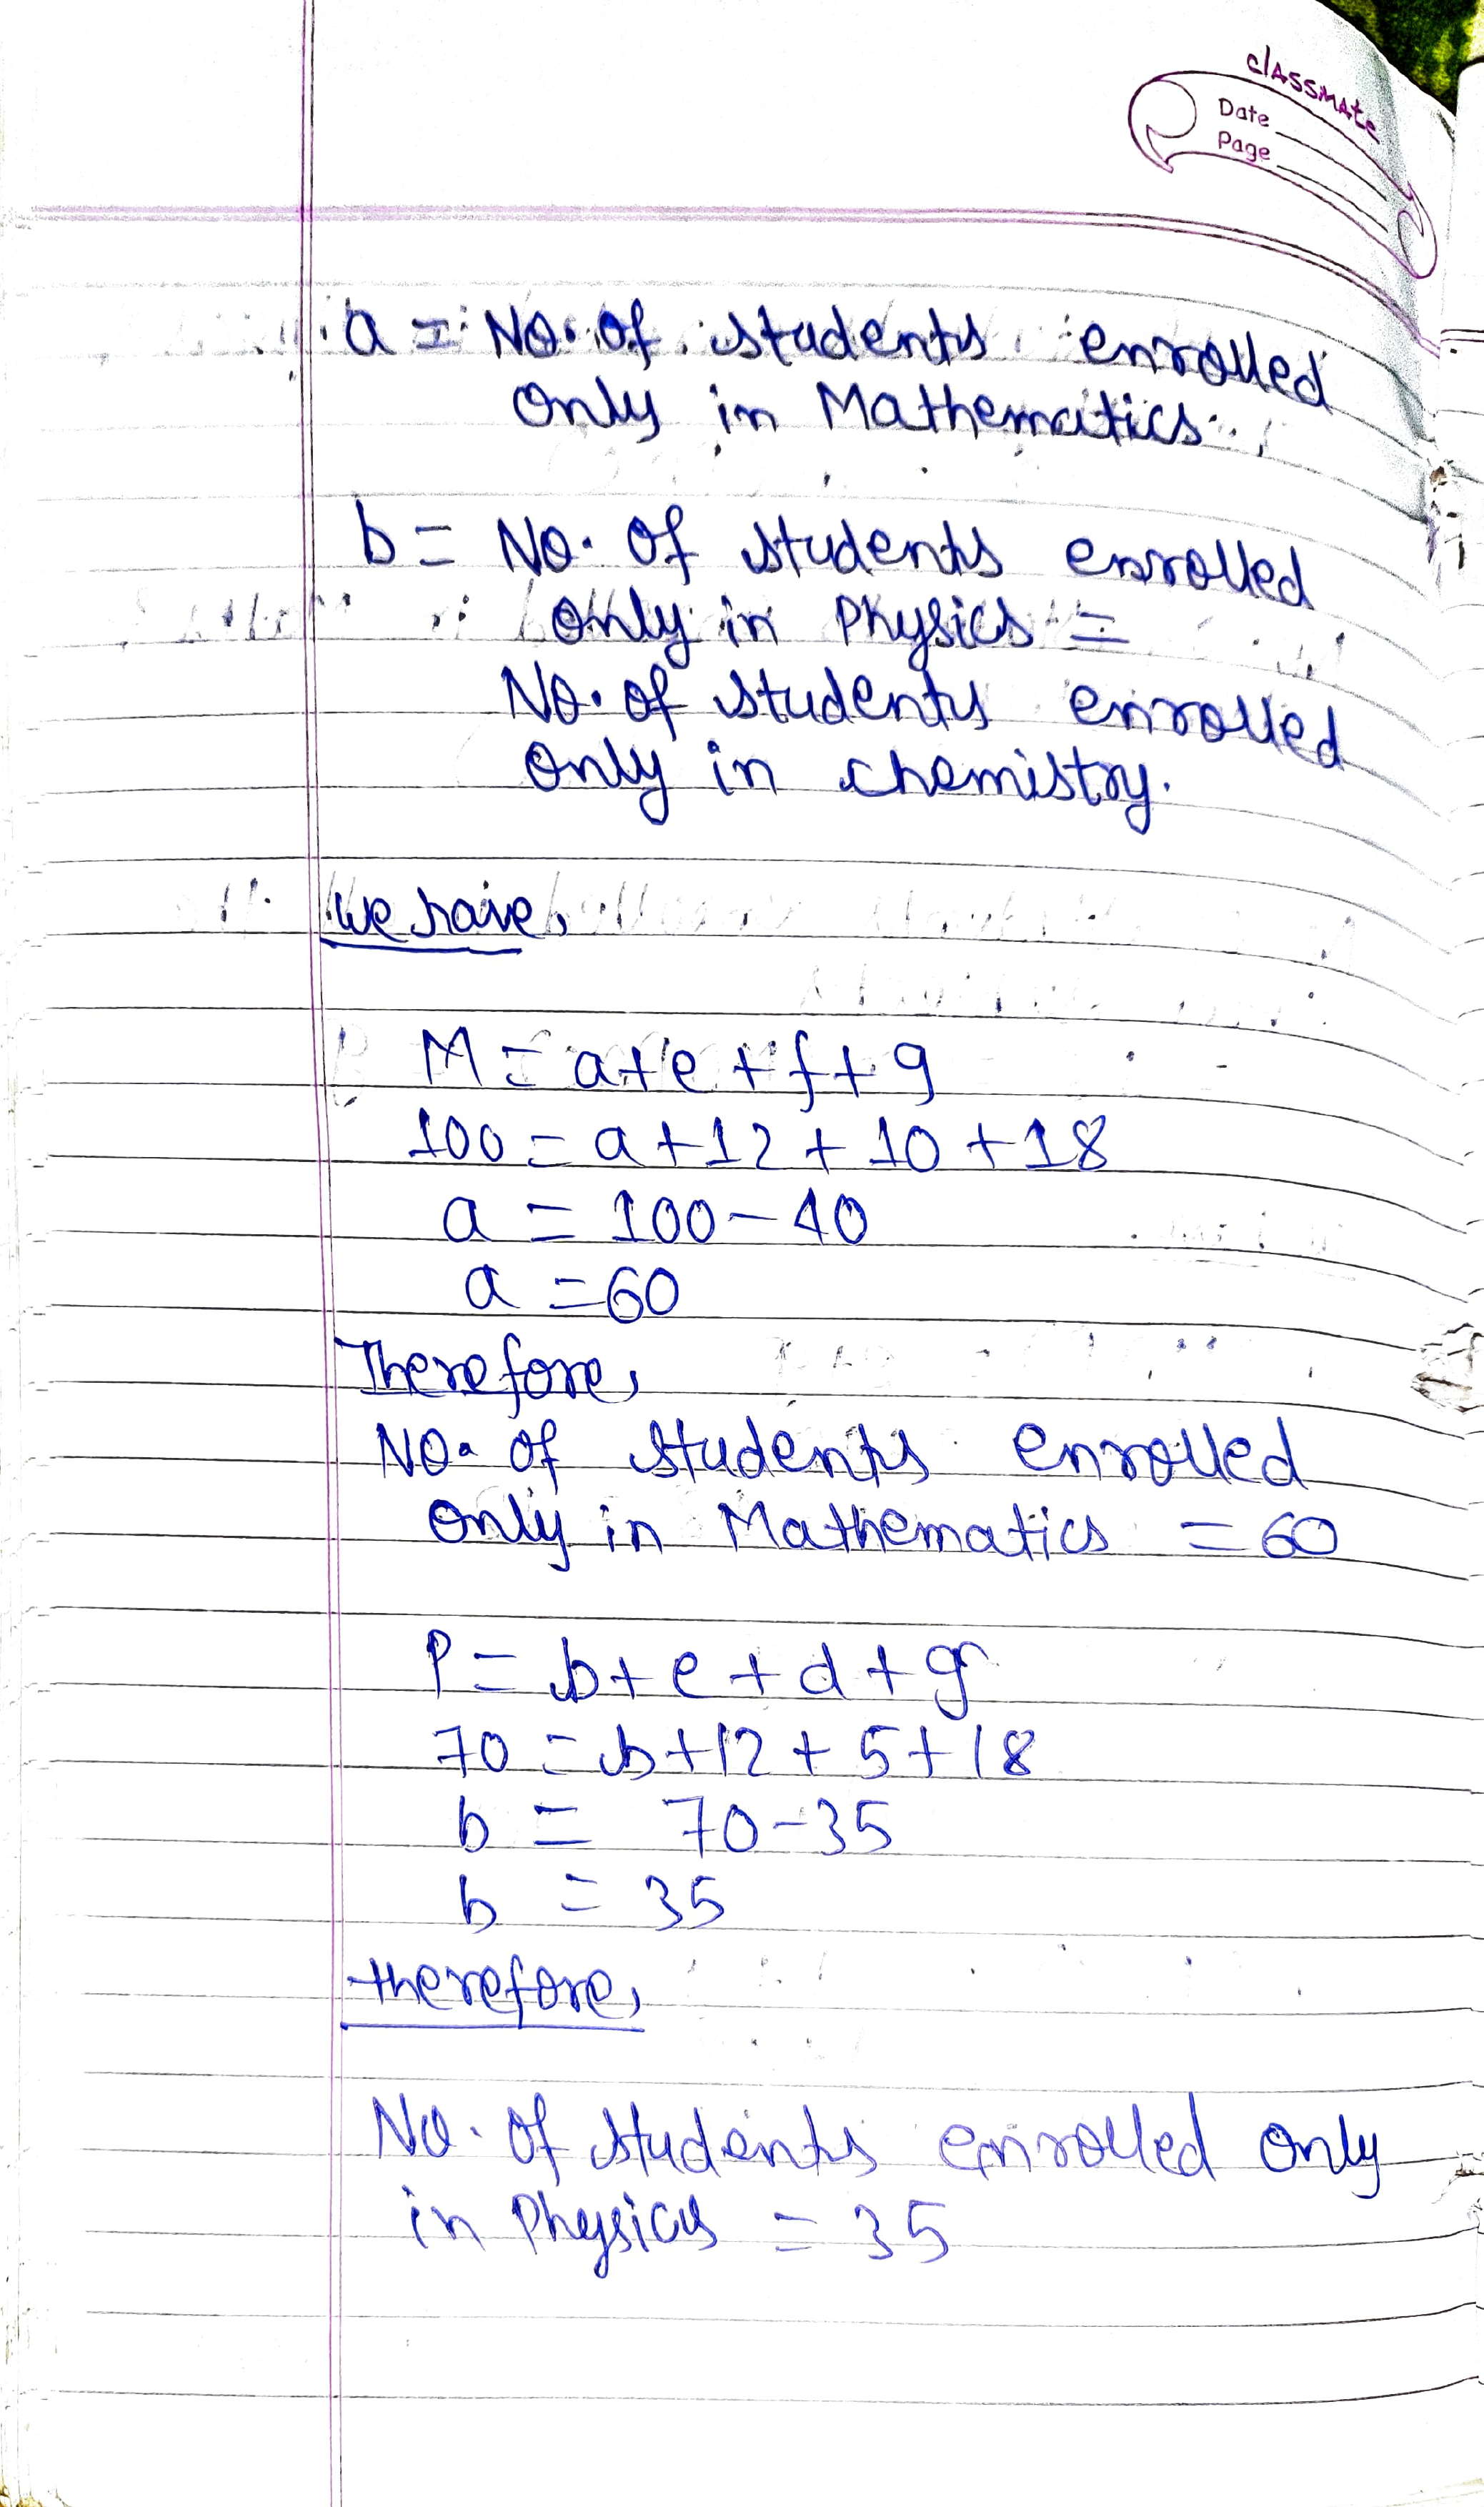 classmate
Date
Page
a = No. of students enrolled
only in Mathematics.
b = No. of students enrolled
only in Physics =
No. of students enrolled
only in chemistry.
we have,
M = a+e+f+g
100 = a+12+10+18
a = 100-40
a = 60
Therefore,
No. of students enrolled
only in Mathematics = 60
P = b+e+d+g
70 = b+12+5+18
b = 70-35
b = 35
therefore,
No. of students enrolled only
in Physics = 35